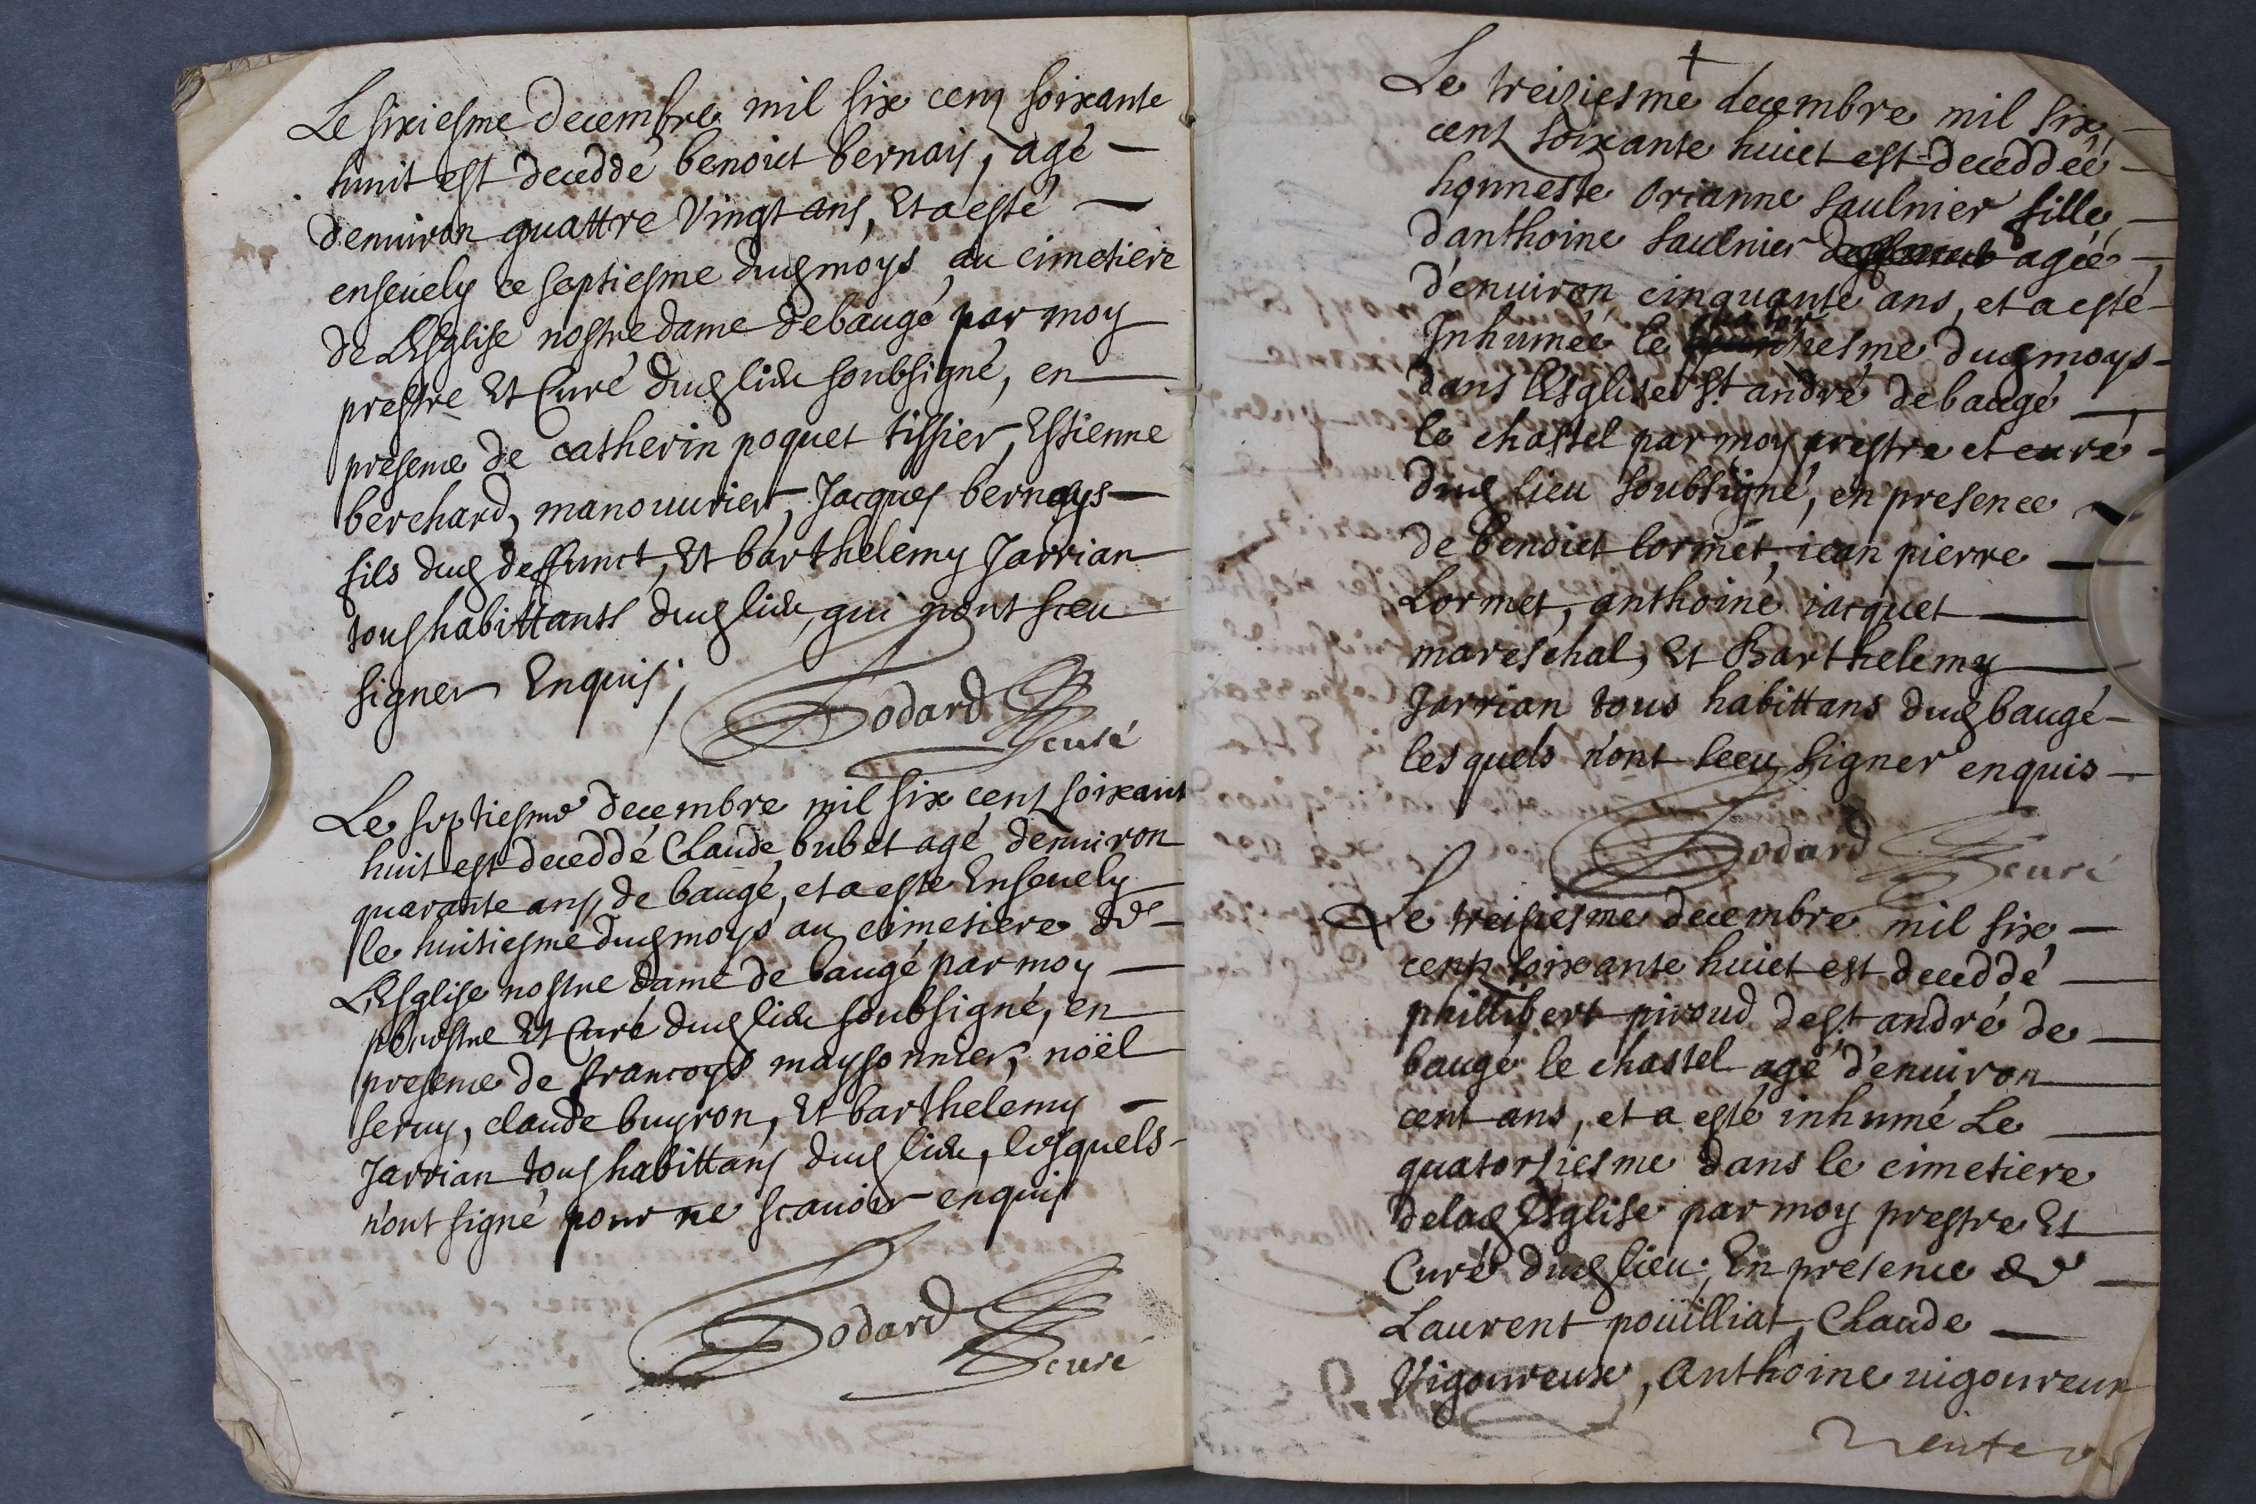 Le sixiesme decembre mil six cent soixante
huit est deceddé benoict bernais, agé
denuiron quattre Vingt ans, Et a esté
enseuely ce septiesme dud moys au cimetiere
de L'Esglise nostre dame de baugé par moy
prestre Et Curé dud lieu soubsigné, en
presence de catherin poquet tissier, Estienne
berchard, manouurier, Jacques bernays
fils dud deffunct, Et barthelemy Jarrian
tous habittants dud lieu, qui n'ont sceu
signer Enquis;
Bodard
curé
Le septiesme decembre mil six cent soixant
huit est deceddé Claude bubet agé denuiron
quarante ans, de baugé, et a esté Enseuely
le huitiesme dud moys au cimetiere de
L'Esglise nostre dame de baugé par moy
prestre Et Curé dud lieu soubsigné, en
presence de francoys maysonnier, noël
seruy, claude buyron, Et barthelemy
Jarrian tous habittans dud lieu, lesquels
n'ont signé pour ne scauoir enquis
Bodard
curé
Le treiziesme decembre mil six
cent soixante huict est deceddéé
honneste Orianne saulnier fille
d'anthoine saulnier agéé
d'enuiron cinquante ans, et a esté
Inhuméé le quatorziesme dud moys
dans l'Esglise St andré de baugé
le chastel par moy prestre et curé
dud lieu soubsigné, en presence
de benoict lormet, iean pierre
Lormet, anthoine iacquet
mareschal, Et Barthelemy
Jarrian tous habittans dud baugé
lesquels n'ont sceu signer enquis
Bodard
curé
Le treisiesme decembre mil six
cent soixante huict est deceddé
phillibert piroud de St andré de
baugé le chastel agé d'enuiron
cent ans, et a esté inhumé Le
quatorziesme dans le cimetiere
de lad Esglise par moy prestre Et
Curé dud lieu; En presence de
Laurent poüilliat, Claude
Vigoureux, Anthoine uigoureux